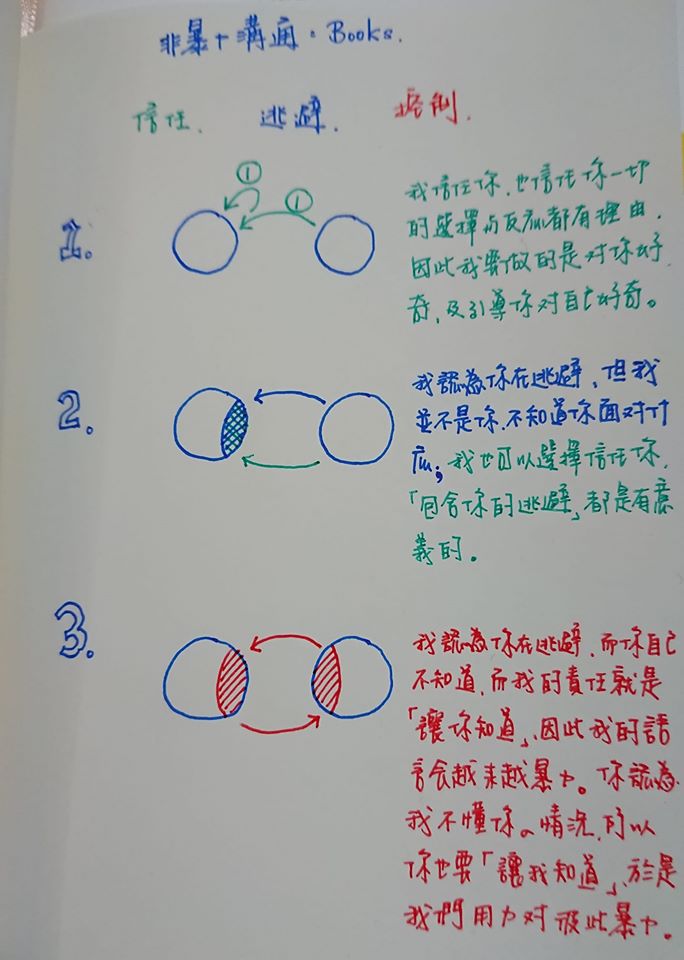 非暴力溝通。Books.
信任. 逃避. 控制.
1.
① ①
我信任你,也信任你一切
的選擇与反应都有理由,
因此我要做的是对你好
奇,及引導你对自己好奇。
2.
我認為你在逃避,但我
並不是你,不知道你面对什
広;我也可以選擇信任你,
「包含你的逃避」都是有意
義的。
3.
我認為你在逃避,而你自己
不知道,而我的責任就是
「讓你知道」,因此我的語
言会越来越暴力。你認為
我不懂你の情況,所以
你也要「讓我知道」,於是
我們用力对彼此暴力。